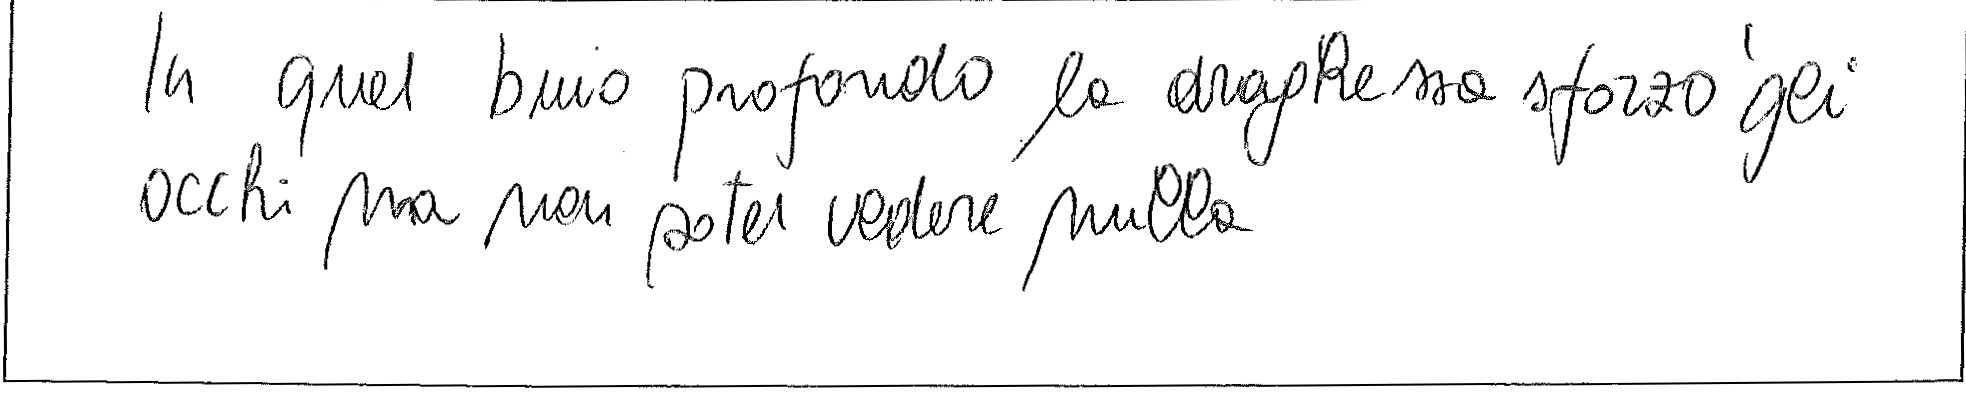 In quel buio profondo la draghessa sforzò gli
occhi ma non potei vedere nulla